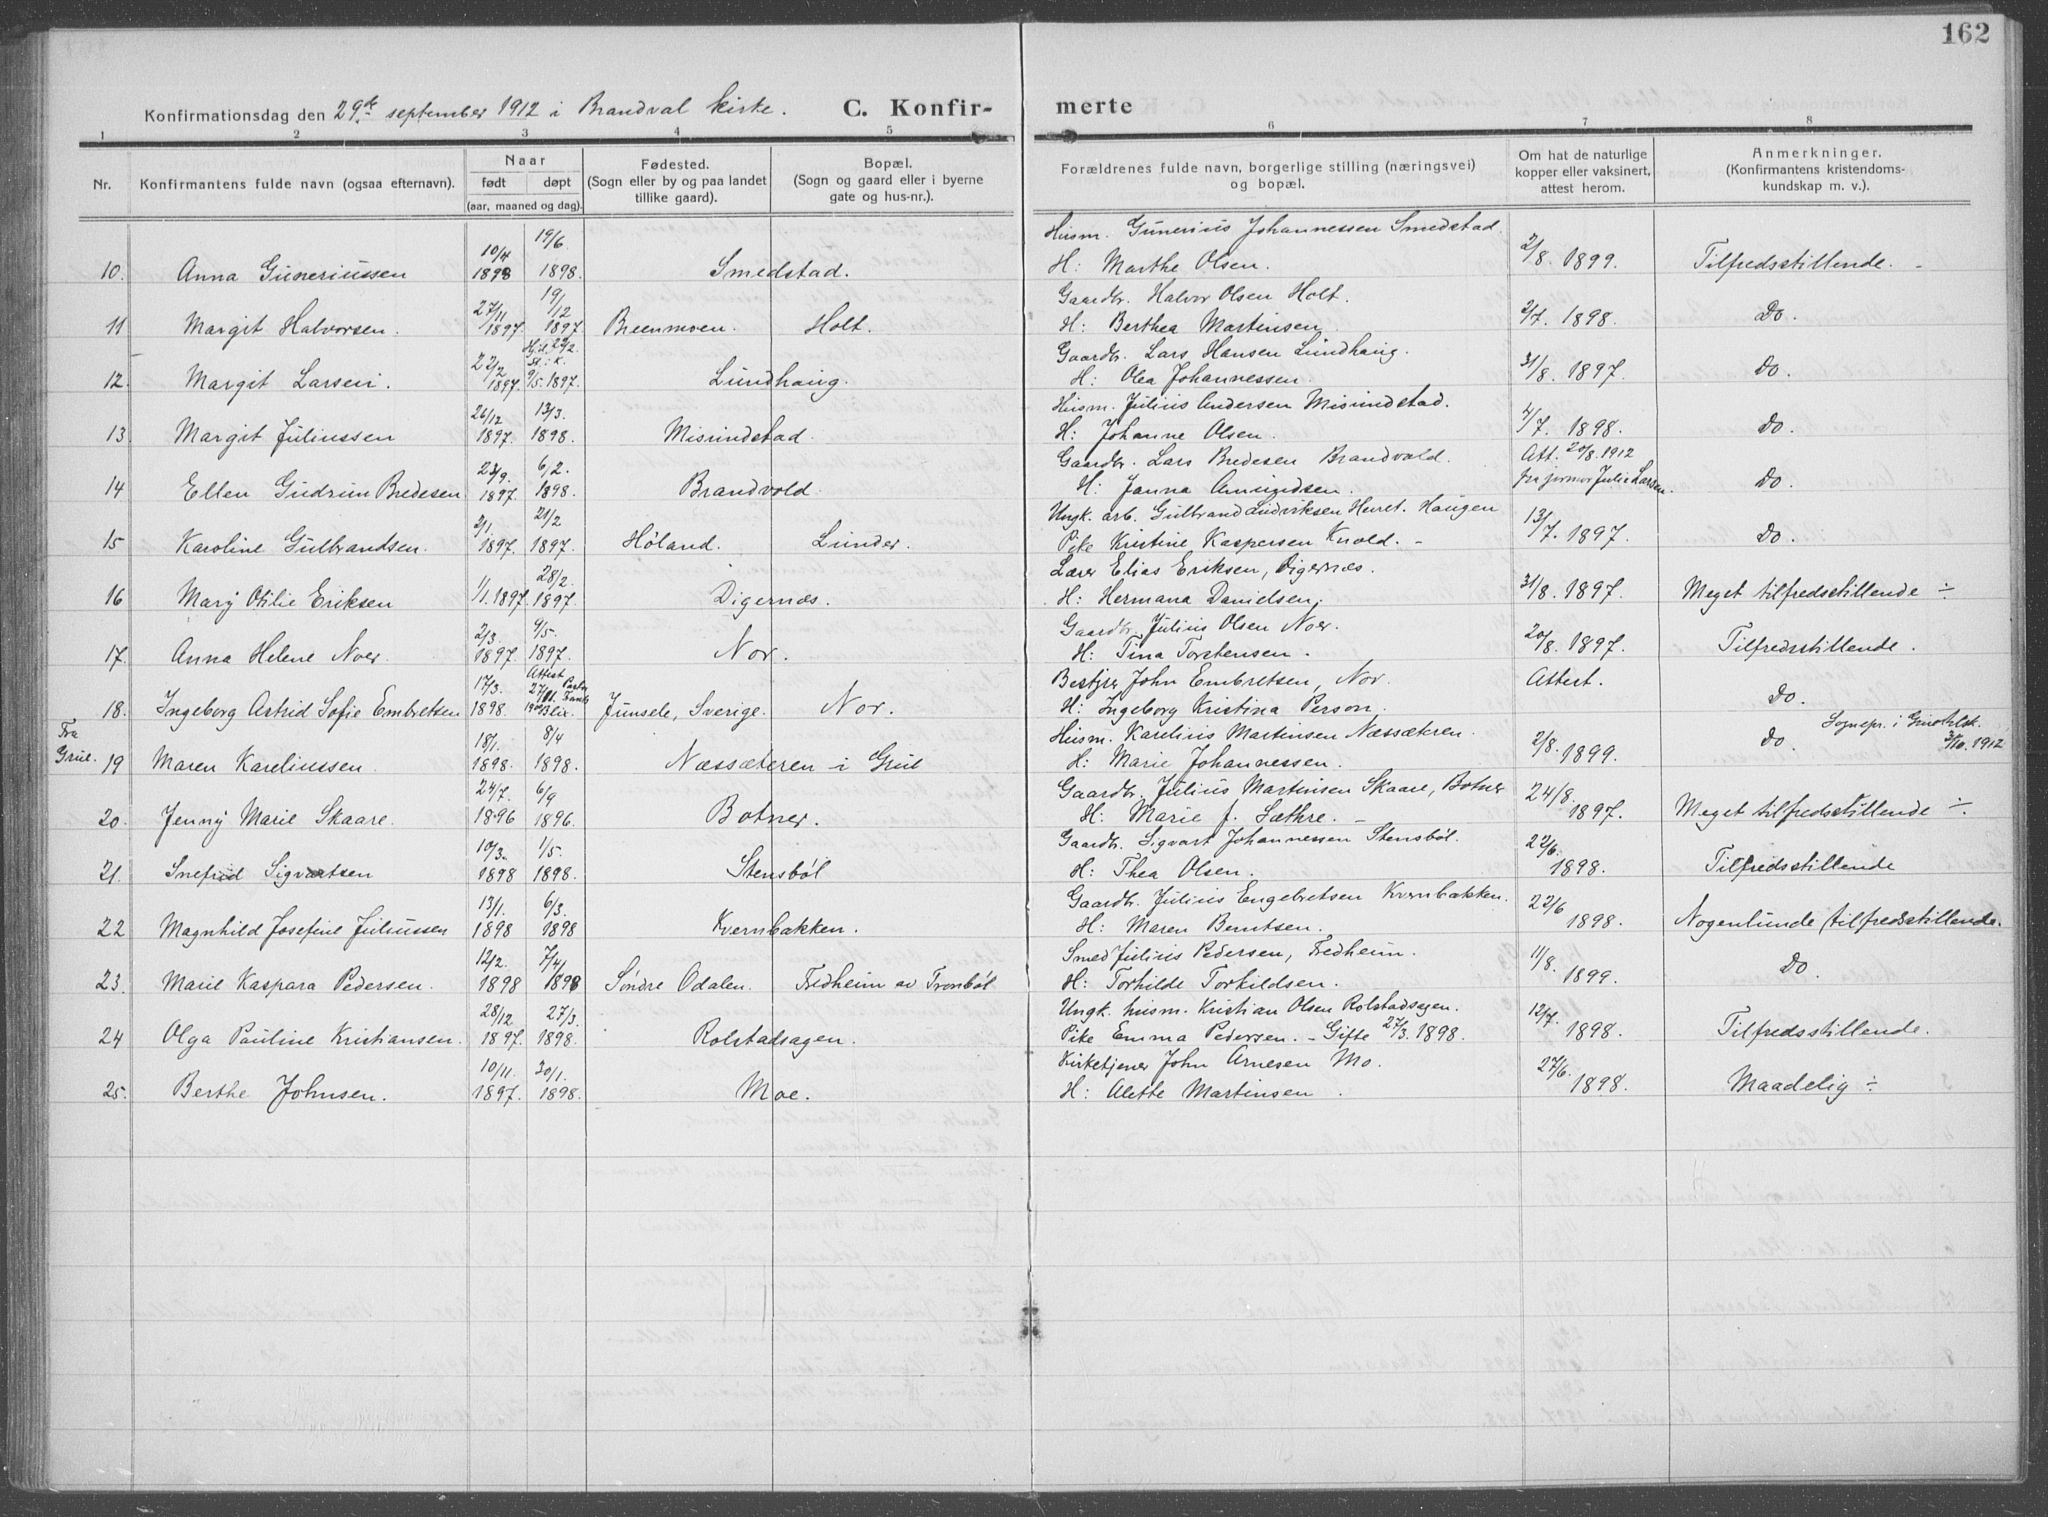 162
Konfirmationsdag den 29de september 1912 i Brandval kirke. C. Konfir- merte
1 2 3 4 5 6 7 8
Nr. Konfirmantens fulde navn (ogsaa efternavn). Naar født døpt (aar, maaned og dag). Fødested. (Sogn eller by og paa landet tillike gaard). Bopæl. (Sogn og gaard eller i byerne gate og hus-nr.). Forældrenes fulde navn, borgerlige stilling (næringsvei) og bopæl. Om hat de naturlige kopper eller vaksinert, attest herom. Anmerkninger. (Konfirmantens kristendoms- kundskap m. v.).
10. Anna Guneriussen 10/4 1898 19/6 1898. Smedstad. Husm. Gunerius Johannessen Smedstad. H: Marthe Olsen. 2/8. 1899. Tilfredsstillende.
11 Margit Halvorsen. 27/11 1897. 19/12 1897. Breenmoen. Holt. Gaardbr. Halvor Olsen Holt. H: Berthea Martinsen 2/7. 1898. Do.
12. Margit Larsen. 22/2 1897. Hj.d. 22/2. st. i K. 9/5. 1897. Lundhaug. Gaardbr. Lars Hansen Lundhaug. H: Olea Johannessen. 31/8. 1897. Do.
13. Margit Juliussen 26/12 1897. 13/3. 1898. Misundstad. Husm. Julius Andersen Misundstad. H: Johanne Olsen. 4/7. 1898. Do.
14 Ellen Gudrun Bredesen 23/9. 1897. 6/2. 1898. Brandvold. Gaardbr. Lars Bredesen Brandvold. H: Janna Amundsen. Att. 20/8. 1912 fra jormor Julie Larsen. Do.
15 Karoline Gulbrandsen. 2/1. 1897. 21/2 1897. Høland. Lunder. Ungk. arb. Gulbrand Ludviksen Heret. Haugen Pike Kristine Kaspersen Knold. - 13/7. 1897. Do.
16 Mary Otilie Eriksen 1/1. 1897. 28/2. 1897. Digernæs. Lærer Elias Eriksen, Digernæs. H: Hermana Danielsen. 31/8. 1897. Meget tilfredsstillende ÷
17. Anna Helene Noer. 2/3. 1897. 9/5. 1897. Nor. Gaardbr. Julius Olsen Noer. H: Tina Torstensen. 20/8. 1897. Tilfredsstillende.
18. Ingeborg Astrid Sofie Embretsen 17/3. 1898. Attest Blix. Junsele, Sverige. Nor. Bestyrer John Embretsen, Nor. H: Ingeborg Kristina Person. Attest. Do.
Fra Grue. 19 Maren Kareliussen. 18/1. 1898. 8/4 1898. Næssæteren i Grue Husm. Karelius Martinsen Næssæteren. H: Marie Johannessen. 2/8. 1899. Do. Sognepr. i Grue 3/10. 1912
20. Jenny Marie Skaare. 24/7. 1896 6/9 1896. Botner. Gaardbr. Julius Martinsen Skaare, Botner H: Marie f. Sæthre. - 24/8. 1897. Meget tilfredsstillende ÷.
21. Snefrid Sigvartsen 10/3. 1898 1/5. 1898. Stensbøl Gaardbr. Sigvart Johannessen Stensbøl. H: Thea Olsen. 22/6. 1898. Tilfredsstillende
22 Magnhild Josefine Juliussen 13/1. 1898 6/3. 1898 Kvernbækken. Gaardbr. Julius Engebretsen Kvernbækken. H: Maren Berntsen. 22/6 1898. Nogenlunde tilfredsstillende.
23. Marie Kaspara Pedersen. 12/2. 1898 7/4 1898 Søndre Odalen. Fredheim av Tronbøl Smed Julius Pedersen, Fredheim. H: Torhilde Torkildsen. 11/8. 1899. Do.
24 Olga Pauline Kristiansen. 28/12 1897. 27/3. 1898. Rolstadsagen. Ungk. husm. Kristian Olsen Rolstadsagen. Pike Emma Pedersen. - Gifte 27/3. 1898. 12/7. 1898. Tilfredsstillende.
25. Berthe Johnsen. 10/11. 1897. 30/1. 1898. Moe. Kirketjener John Arnesen Mo. H: Alette Martinsen. 27/6. 1898. Maadelig ÷